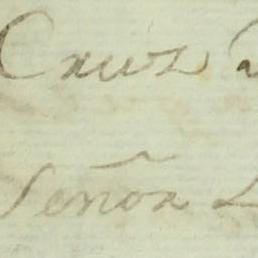 Cruz
Señor